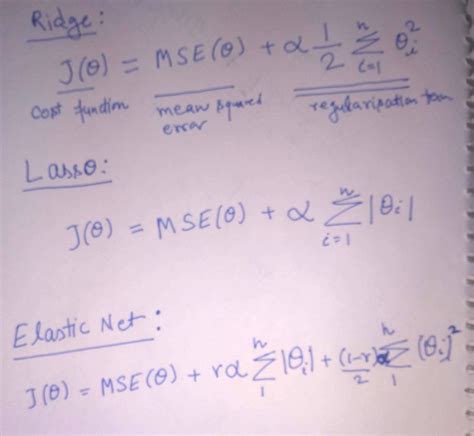 Ridge:
J(θ) = MSE(θ) + α 1/2 Σ_{i=1}^{n} θ_i^2
cost function mean squared error regularisation term
Lasso:
J(θ) = MSE(θ) + α Σ_{i=1}^{n} |θ_i|
Elastic Net:
J(θ) = MSE(θ) + rα Σ_{1}^{n} |θ_i| + (1-r)/2 α Σ_{1}^{n} (θ_i)^2